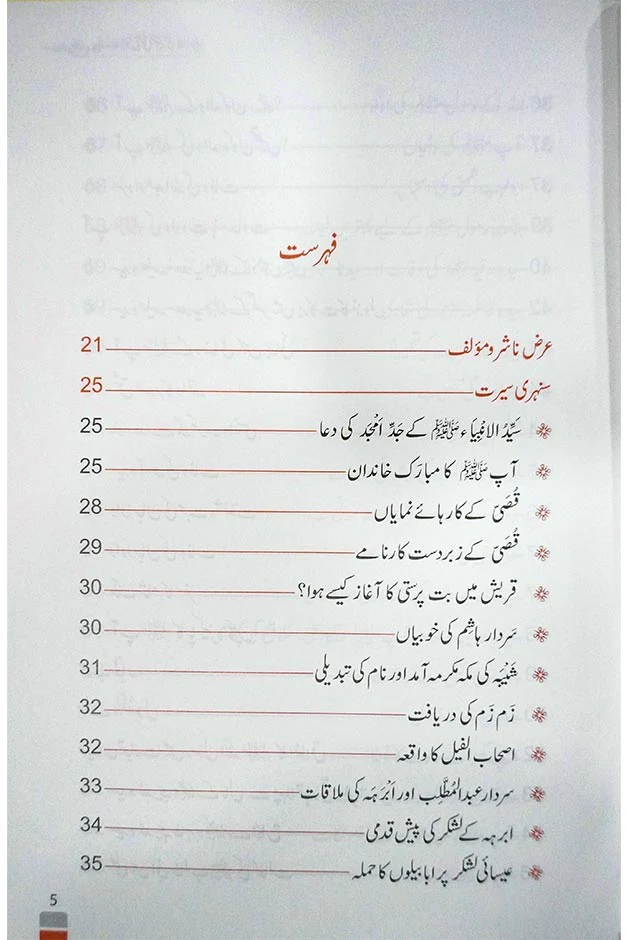 فہرست
عرض ناشر و مؤلف 21
سنہری سیرت 25
سَیِّدُ الانبِیَاء ﷺ کے جَدِّ اَمْجَد کی دعا 25
آپ ﷺ کا مبارَک خاندان 25
قُصَیّ کے کارہائے نمایاں 28
قُصَیّ کے زبردست کارنامے 29
قریش میں بت پرستی کا آغاز کیسے ہوا؟ 30
سَردار ہاشِم کی خوبیاں 30
شَیْبَہ کی مکہ مکرمہ آمد اور نام کی تبدیلی 31
زَم زَم کی دریافت 32
اصحاب الفیل کا واقعہ 32
سردار عبدالمُطَّلِب اور اَبْرَہَہ کی ملاقات 33
ابرہہ کے لشکر کی پیش قدمی 34
عیسائی لشکر پر ابابیلوں کا حملہ 35
5